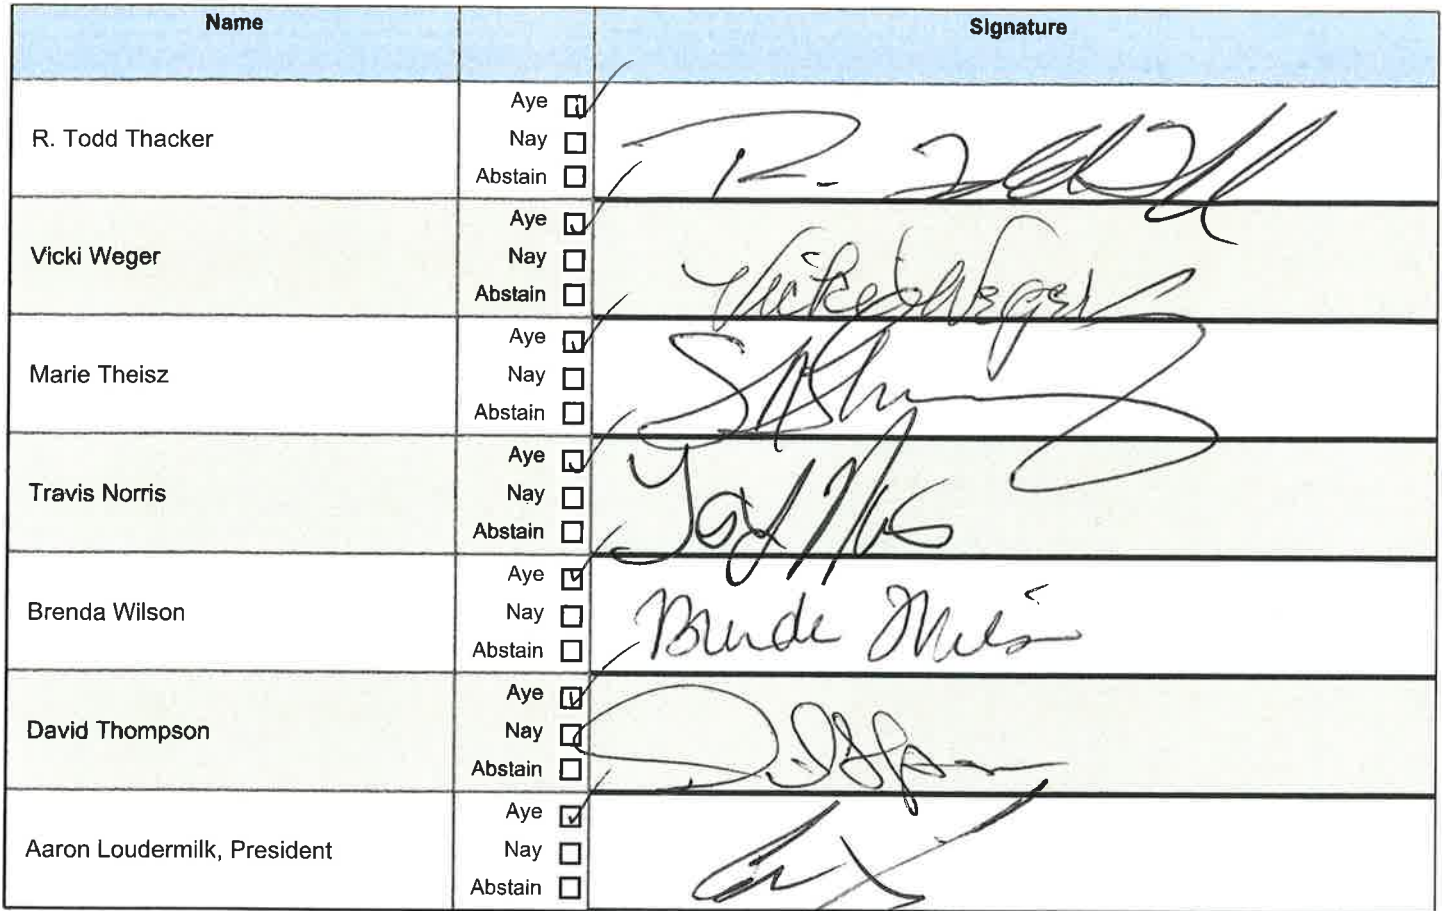 Name Signature
R. Todd Thacker
Aye
Nay
Abstain
Vicki Weger
Aye
Nay
Abstain
Vicki Weger
Marie Theisz
Aye
Nay
Abstain
Travis Norris
Aye
Nay
Abstain
Brenda Wilson
Aye
Nay
Abstain
Brenda Wilson
David Thompson
Aye
Nay
Abstain
Aaron Loudermilk, President
Aye
Nay
Abstain